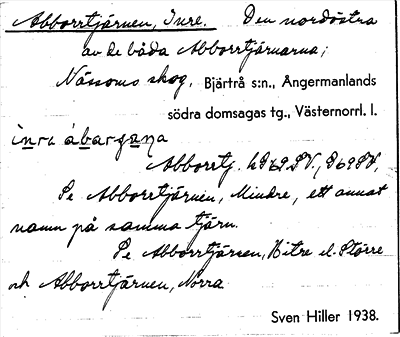 Abborrtjärnen, Inre. Den nordöstra
av de båda Abborrtjärnarna;
Nässoms skog. Bjärtrå s:n., Ångermanlands
södra domsagas tg., Västernorrl. l.
inra
Abborrtj.
Se Abborrtjärnen, Mindre, ett annat
namn på samma tjärn.
Se Abborrtjärnen, Yttre el. Större
och Abborrtjärnen, Norra
Sven Hiller 1938.